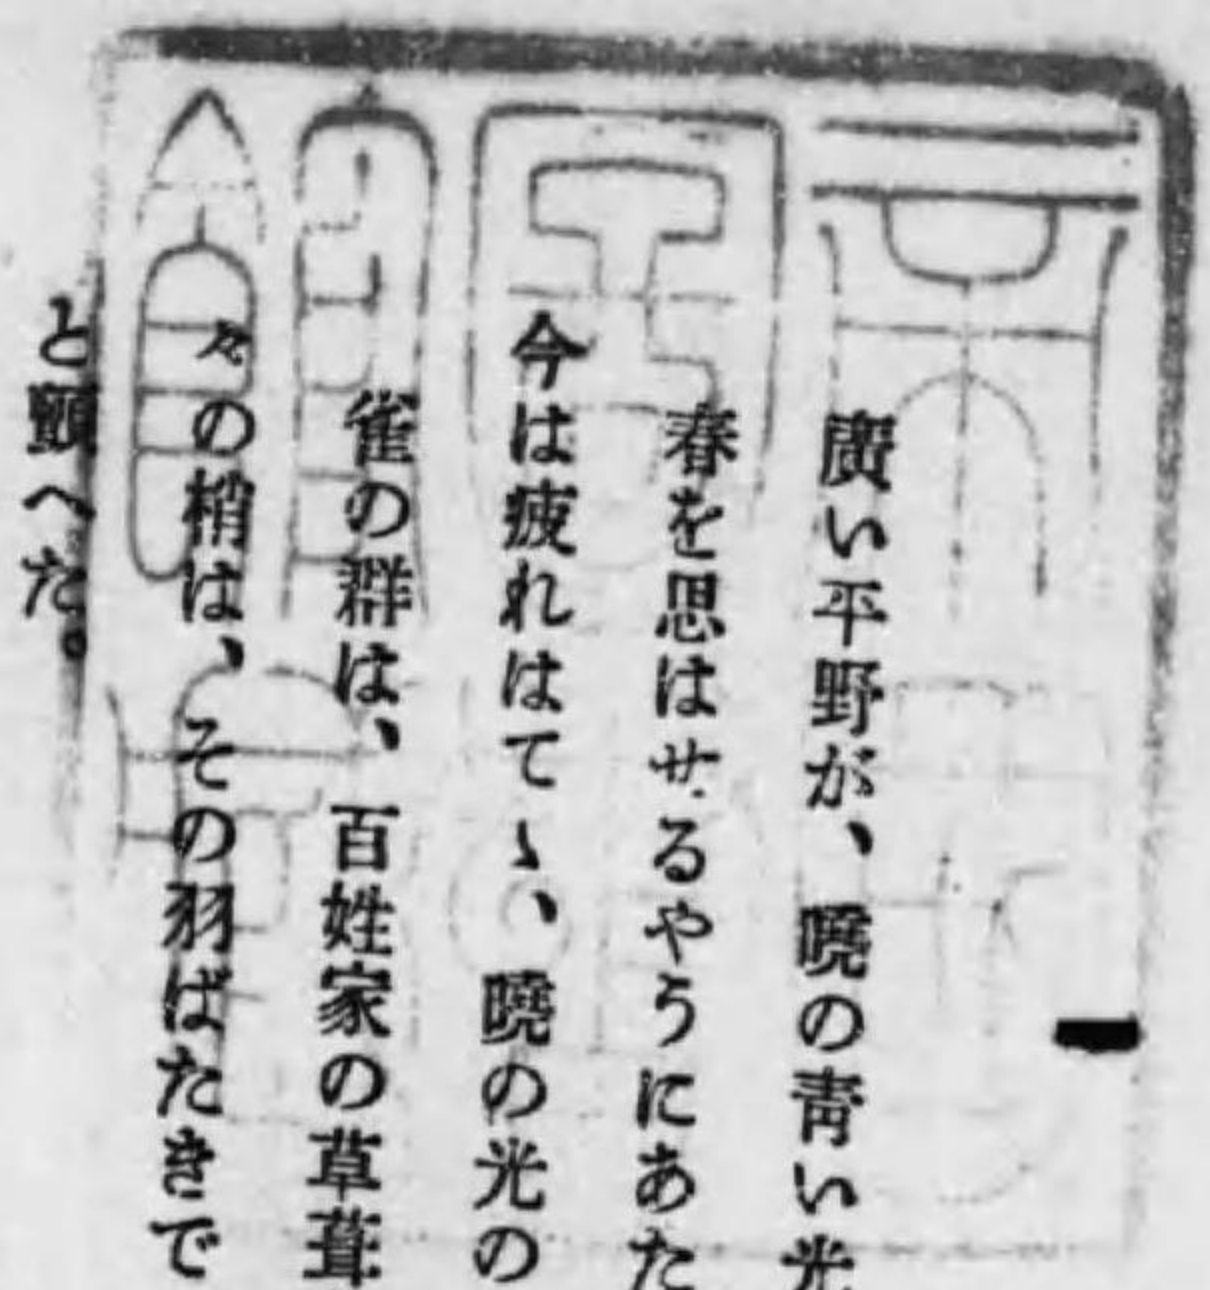 一
廣い平野が、曉の靑い光
春を思はせるやうにあた
今は疲れはてゝ、曉の光の
雀の群は、百姓家の草葺
々の梢は、その羽ばたきで
と顫へた。